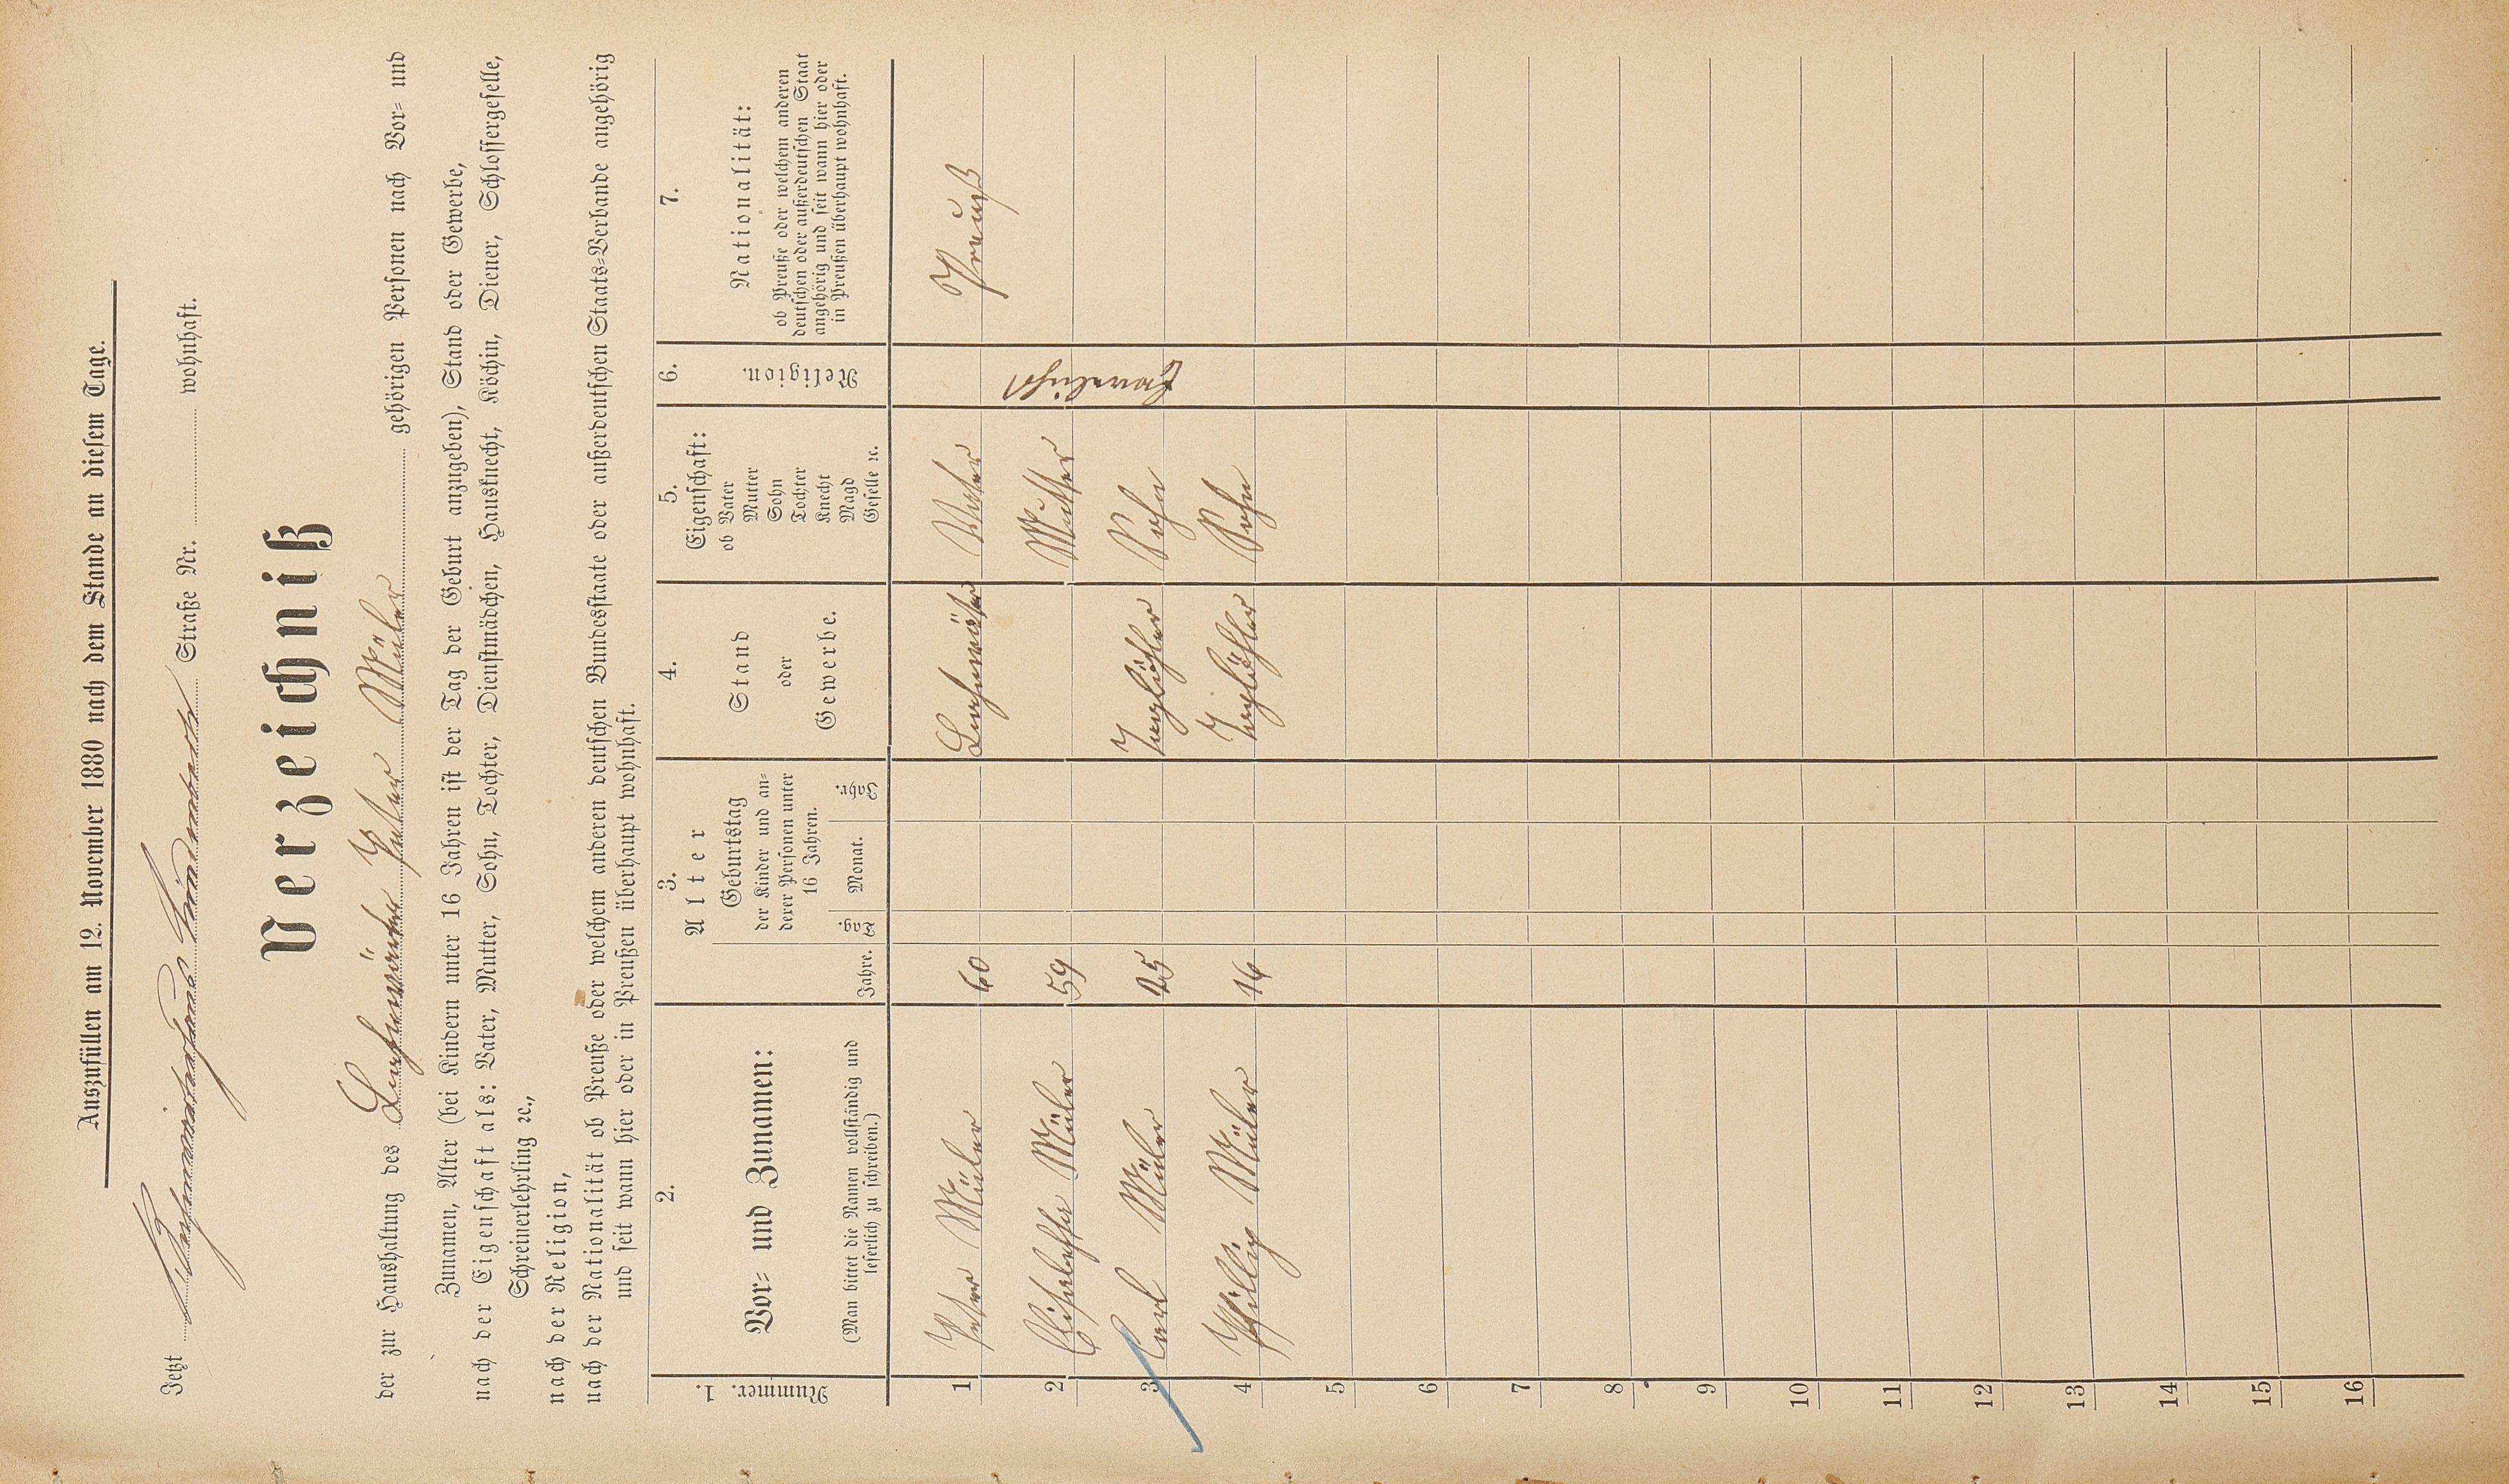 Auszufüllen am 12. November 1880 nach dem Stande an diesem Tage.
Jetzt Straße Nr. wohnhaft.
Verzeichniß
der zur Haushaltung des Peter Müler gehörigen Personen nach Vor- und
Zunamen, Alter (bei Kindern unter 16 Jahren ist der Tag der Geburt anzugeben), Stand oder Gewerbe,
nach der Eigenschaft als: Vater, Mutter, Sohn, Tochter, Dienstmädchen, Hausknecht, Köchin, Diener, Schlossergeselle,
Schreinerlehrling ꝛc.,
nach der Religion,
nach der Nationalität ob Preuße oder welchem anderen deutschen Bundesstaate oder außerdeutschen Staats-Verbande angehörig
und seit wann hier oder in Preußen überhaupt wohnhaft.
1. Nummer.
2.
Vor- und Zunamen:
(Man bittet die Namen vollständig und
leserlich zu schreiben.)
3.
Alter
Jahre.
Geburtstag
der Kinder und an-
derer Personen unter
16 Jahren.
Tag. Monat. Jahr.
4.
Stand
oder
Gewerbe.
5.
Eigenschaft:
ob Vater
Mutter
Sohn
Tochter
Knecht
Magd
Geselle ꝛc.
6.
Religion.
7.
Nationalität:
ob Preuße oder welchem anderen
deutschen oder außerdeutschen Staat
angehörig und seit wann hier oder
in Preußen überhaupt wohnhaft.
1 Peter Müler 60 Vater Preuß
2 Müler 59 Mutter
3 Carl Müler 25 Taglöhler Sohn
4 Phillip Müler 16 Taglöhler Sohn
5
6
7
8
9
10
11
12
13
14
15
16